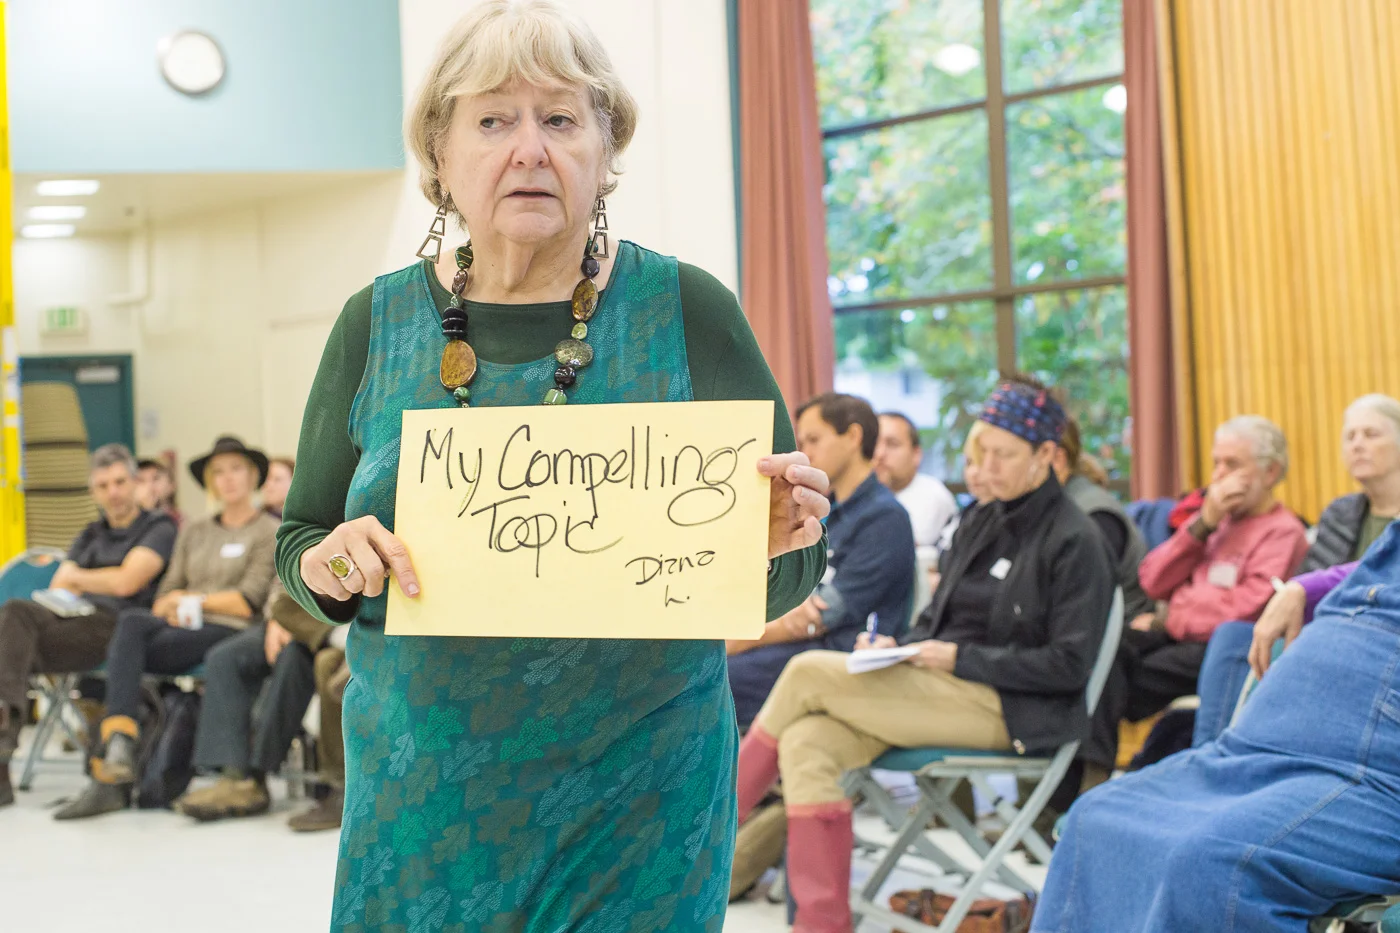 My Compelling
Topic
Diana
L.